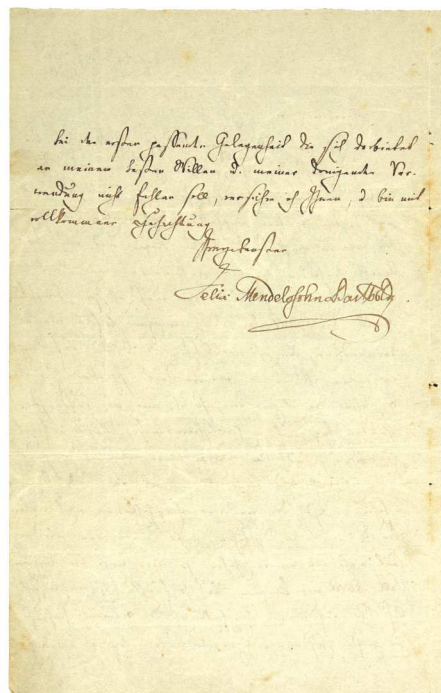 bei der ersten passenden Gelegenheit die sich darbietet
an meinem besten Willen u. meiner dringenden Ver-
wendung nicht fehlen soll, versichre ich Ihnen, u bin mit
vollkommener Hochachtung
Ihr ergebenster
Felix Mendelssohn Bartholdy.